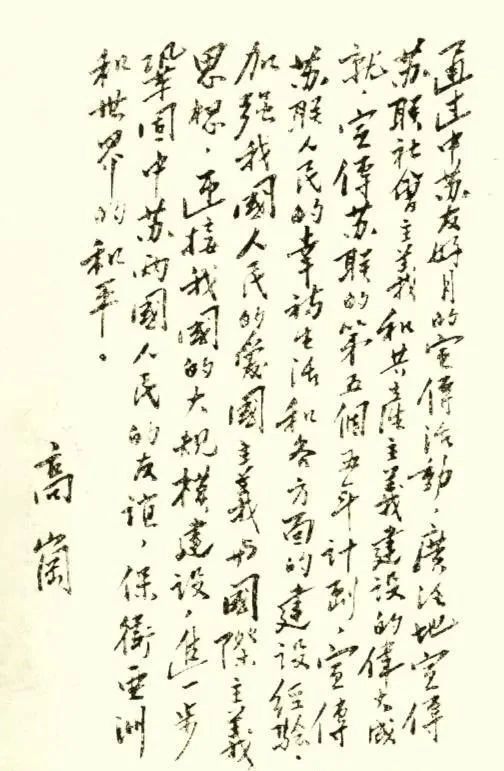 通过中苏友好月的宣傳活動，廣泛地宣傳
苏联社會主義和共產主義建設的偉大成
就，宣傳苏联的第五個五年計劃，宣傳
苏联人民的幸福生活和各方面的建設經驗，
加强我國人民的愛國主義与國際主義
思想，迎接我國的大規模建設，進一步
鞏固中苏两國人民的友谊，保衛亜洲
和世界的和平。
高崗